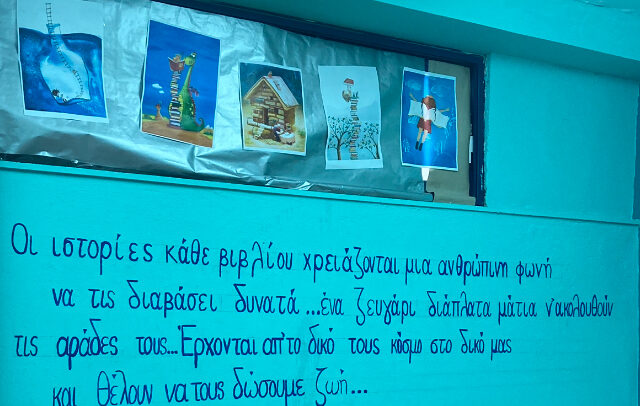 Οι ιστορίες κάθε βιβλίου χρειάζονται μια ανθρώπινη φωνή
να τις διαβάσει δυνατά ...ένα ζευγάρι διάπλατα μάτια ν'ακολουθούν
τις αράδες τους...Έρχονται απ'το δικό τους κόσμο στο δικό μας
και θέλουν να τους δώσουμε ζωή...